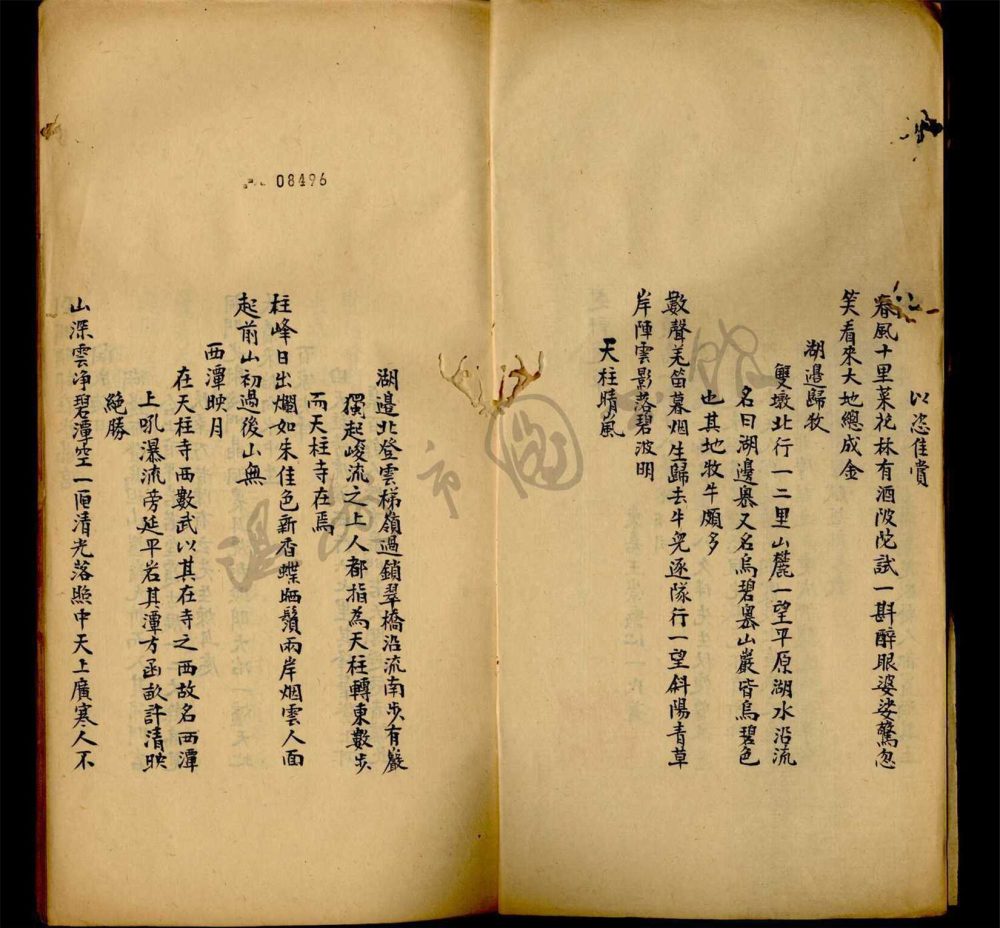 以恣佳賞
春風十里菜花林有酒陂陀試一斟醉眼婆娑驚忽
笑看來大地總成金
湖邊歸牧
雙墩北行一二里山麓一望平原湖水沿流
名曰湖邊嶴又名烏碧嶴山巖皆烏碧色
也其地牧牛頗多
數聲羌笛暮烟生歸去牛兒逐隊行一望斜陽青草
岸陣雲影落碧波明
天柱晴嵐
湖邊北登雲梯嶺過鎖翠橋沿流南步有巖
獨起峻流之上人都指為天柱轉東數步
而天柱寺在焉
柱峰日出爛如朱佳色新香蝶晒鬚兩岸烟雲人面
起前山初過後山無
西潭映月
在天柱寺西數武以其在寺之西故名西潭
上吼瀑流旁延平岩其潭方函畝許清映
絕勝
山深雲净碧潭空一匣清光落照中天上廣寒人不
08496
溫州市圖